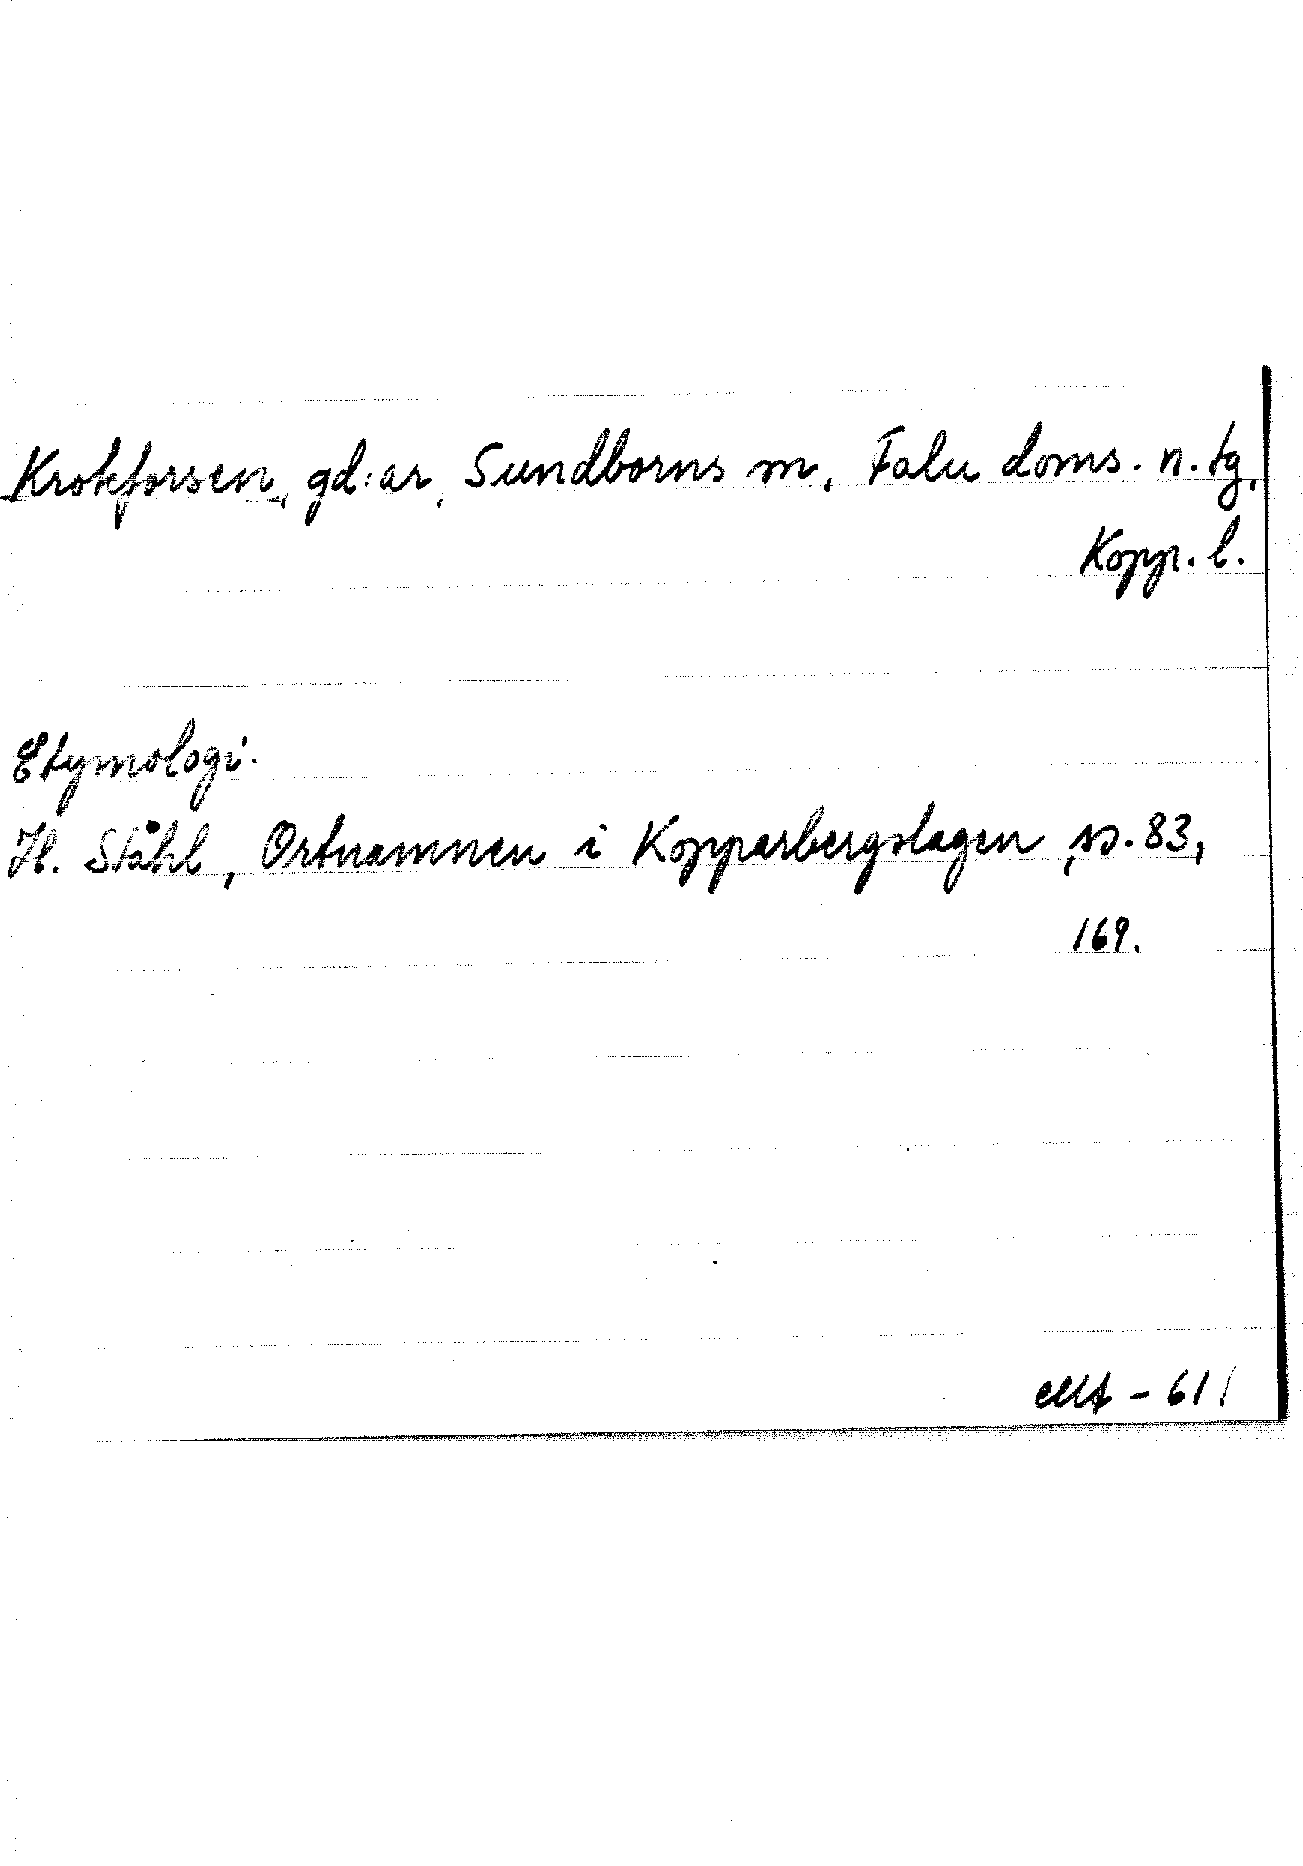 Krokforsen, gd:ar, Sundborns sn, Falu doms. n. tg,
Kopp. l.
Etymologi.
H. Ståhl, Ortnamnen i Kopparbergslagen, ss. 83,
169.
- 61